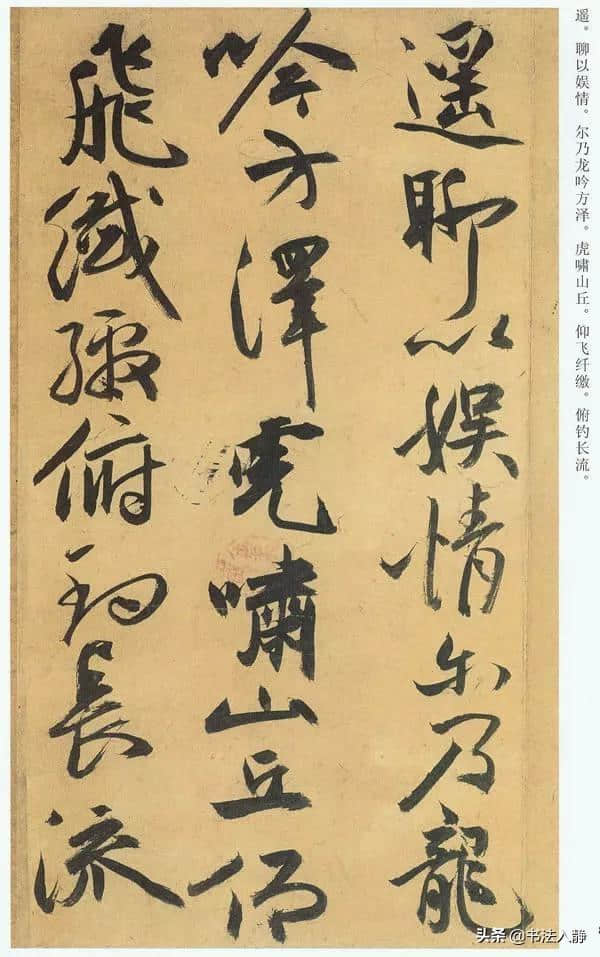 遥。聊以娱情。尔乃龙吟方泽。虎啸山丘。仰飞纤缴。俯钓长流。
遥聊以娱情尔乃龍
吟方澤虎嘯山丘仰
飛纖繳俯釣長流
头条@书法入静